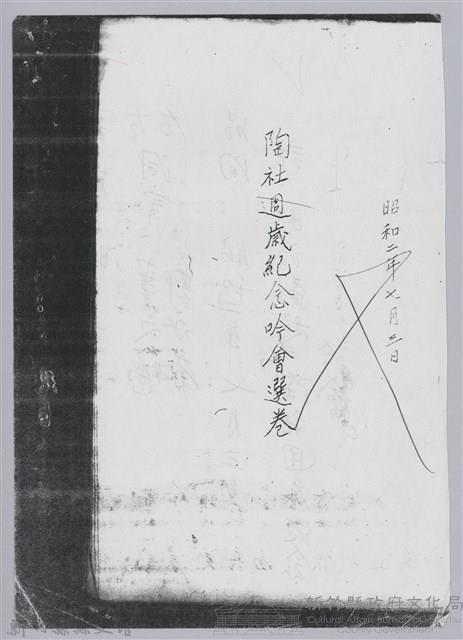 昭和二年七月三日
陶社週歲紀念吟會選卷
新竹縣政府文化局
Cultural Affair Bureau of Hsinchu
County Government